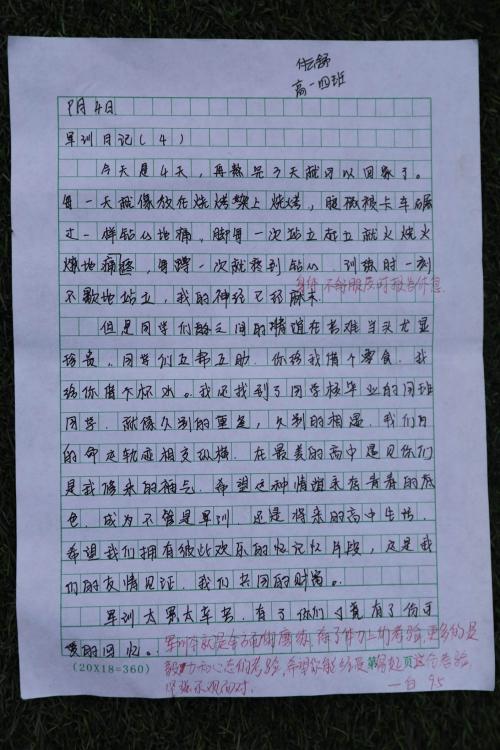 任舒
高一四班
9月4日
军训日记(4)
今天是4天,再熬完3天就可以回家了。
每一天就像放在烧烤架上烧烤,腿被卡车碾
过一样钻心地痛,脚每一次站立都就火烧火
燎地痛疼,每蹲一次就疼到钻心,训练时一刻
身体不舒服应时报告休息
不歇地站立,我的神经已经麻木
但是同学们之间的情谊在苦难当头尤显
珍贵,同学们互帮互助,你给我借个零食,我
给你借个杯水。我还找到了同学校毕业的同班
同学,就像久别的重逢,久别的相遇,我们
的命运轨迹相交纵横,在最美的高中遇见你们
是我修来的福气,希望这种情谊永存青春的底
色,成为不管是军训,还是将来的高中生活,
希望我们拥有彼此欢乐的忆记忆片段,这是我
们的友情见证,我们共同的财富。
军训太累太辛苦,有了你们才有了份可
爱的回忆。军训本就是全方面的磨炼,除了体力上的考验,更多的是
(20×18=360)
毅力和心态的考验,希望你能经受这份考验,
坚强乐观面对
第 页
95